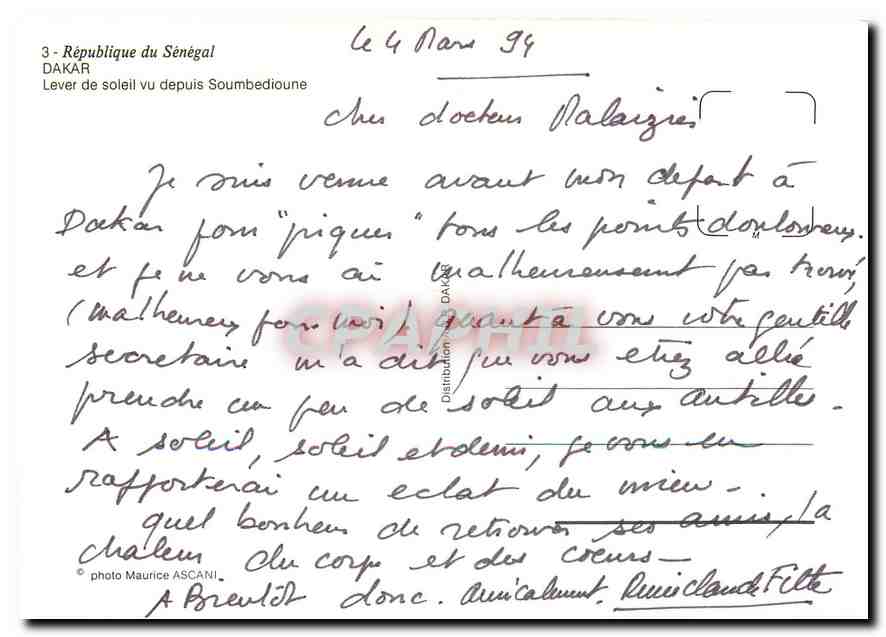 3 - République du Sénégal
DAKAR
Lever de soleil vu depuis Soumbedioune
le 4 Mars 94
cher docteur Malaizier
Je suis venue avant mon depart à
Dakar pour "piquer" tous les points douloureux.
et je ne vous ai malheureusement pas trouvé,
(malheureux pour moi) quant à vous votre gentille
secretaire m'a dit que vous etiez allé
prendre un peu de soleil aux Antilles.
A soleil, soleil et demi, je vous en
rapporterai un eclat du mien -
quel bonheur de retrouver ses amis, la
chaleur du corps et des coeurs -
A Bientôt donc. Amicalement.
© photo Maurice ASCANI
Distribution
DAKAR
CPAPHIL